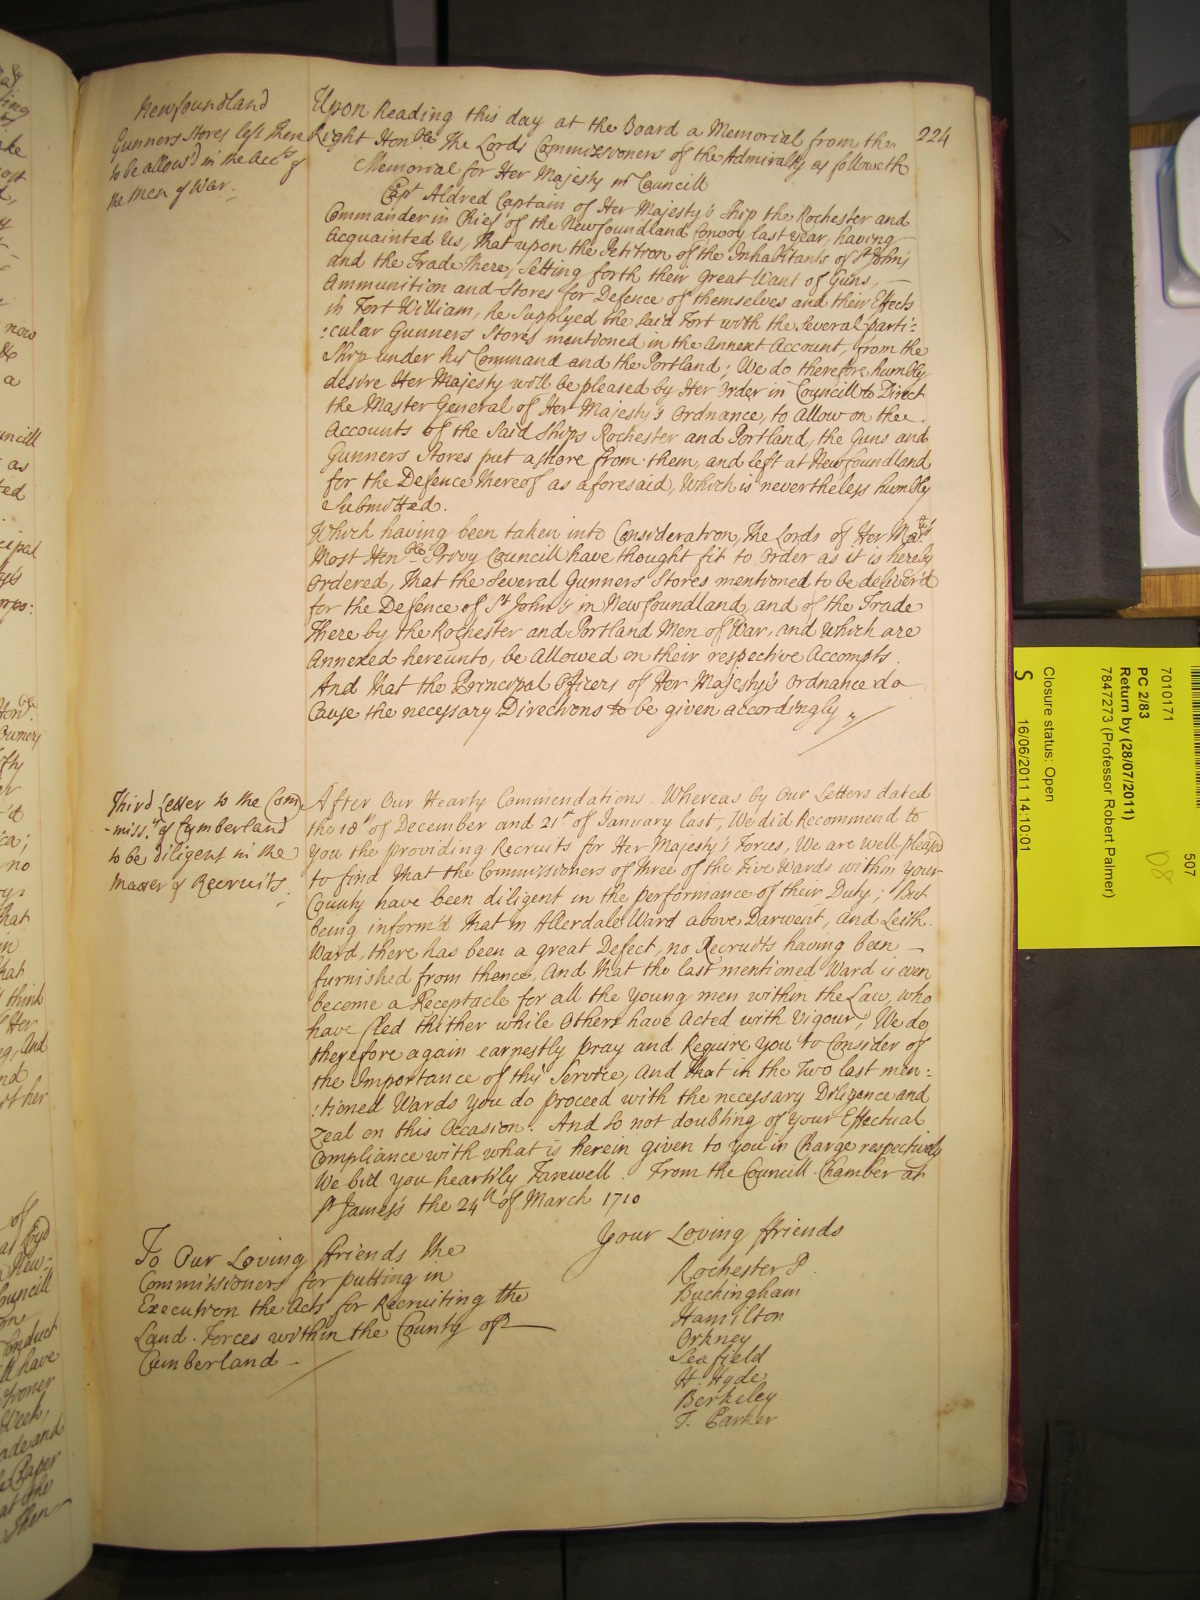 224
Newfoundland
Gunners Stores left there
to be allow'd in the Acc.ts of
the Men of War.
Upon Reading this day at the Board a Memorial from the
Right Hon.ble The Lords Commissioners of the Admiralty as followeth
Memorial for Her Majesty in Councill
Cap.t Aldred Captain of Her Majesty's Ship the Rochester and
Commander in Chief of the Newfoundland Convoy last year, having
Acquainted Us, that upon the Petition of the Inhabitants of S.t John's
and the Trade there, Setting forth their great Want of Guns,
Ammunition and Stores for Defence of themselves and their Effects
in Fort William, he Supplyed the said Fort with the Several parti:
:cular Gunners Stores mentioned in the Annext Account, from the
Ship under his Command and the Portland; We do therefore humbly
desire Her Majesty will be pleased by Her Order in Councill to Direct
the Master General of Her Majesty's Ordnance, to allow on the
Accounts of the Said Ships Rochester and Portland, the Guns and
Gunners Stores put ashore from them, and left at Newfoundland
for the Defence thereof as aforesaid, Which is nevertheless humbly
Submitted.
Which having been taken into Consideration, The Lords of Her Ma.tys
Most Hon.ble Privy Councill have thought fit to Order as it is hereby
Ordered, That the Several Gunners Stores mentioned to be deliver'd
for the Defence of S.t John's in Newfoundland, and of the Trade
there by the Rochester and Portland Men of War, and which are
Annexed hereunto, be Allowed on their respective Accompts.
And that the Principal Officers of Her Majesty's Ordnance do
Cause the necessary Directions to be given accordingly
Third Letter to the Com
-miss.rs of Cumberland
to be diligent in the
Matter of Recruits.
After Our Hearty Commendations. Whereas by Our Letters dated
the 18th of December and 21st of January last, We did Recommend to
You the providing Recruits for Her Majesty's Forces, We are well pleas'd
to find that the Commissioners of three of the Five Wards within your
County have been diligent in the performance of their Duty; But
being inform'd that in Allerdale Ward above Darwent, and Leith
Ward, there has been a great Defect, no Recruits having been
furnished from thence, And that the last mentioned Ward is even
become a Receptacle for all the young men within the Law, who
have fled thither while Others have Acted with Vigour; We do
therefore again earnestly pray and Require you to Consider of
the Importance of this Service, And that in the Two last men:
:tioned Wards you do proceed with the necessary Diligence and
Zeal on this Occasion. And so not doubting of your Effectual
Compliance with what is herein given to you in Charge respectively
We bid you heartily Farewell. From the Councill Chamber at
S.t James's the 24th of March 1710
Your Loving ffriends
To Our Loving ffriends the
Commissioners for putting in
Execution the Acts for Recruiting the
Land Forces within the County of
Cumberland
Rochester P.
Buckingham
Hamilton
Orkney
Seafield
H: Hyde
Berkeley
T. Parker
507
7010171
PC 2/83
Return by (28/07/2011)
7847273 (Professor Robert Palmer)
Closure status: Open
S 16/06/2011 14:10:01
D8